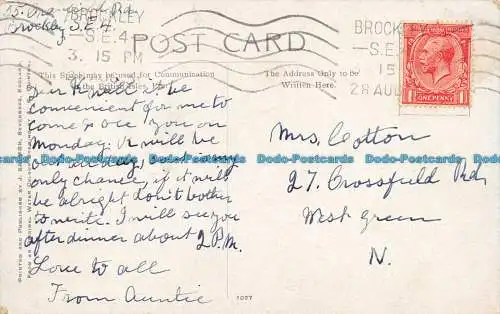 Brockley S.E.4.
BROCKLEY
S.E.4
3. 15 PM
BROCK
S.E.
15
28 AU
POST CARD
ONE PENNY
This Space may be used for Communication
in the British Isles
The Address Only to be
Written Here.
will it be
convenient for me to
come & see you on
Monday. It will be
only chance, if it will
be alright don't bother
to write. I will see you
after dinner about 2 P.M.
Love to all
From Auntie
Mrs. Cotton
27. Crossfield Rd
West Green
N.
1077
PRINTED AND PUBLISHED BY J. SALMON, SEVENOAKS, ENGLAND.
Dodo-Postcards Dodo-Postcards Dodo-Postcards Dodo-Postcards Dodo-Postcards